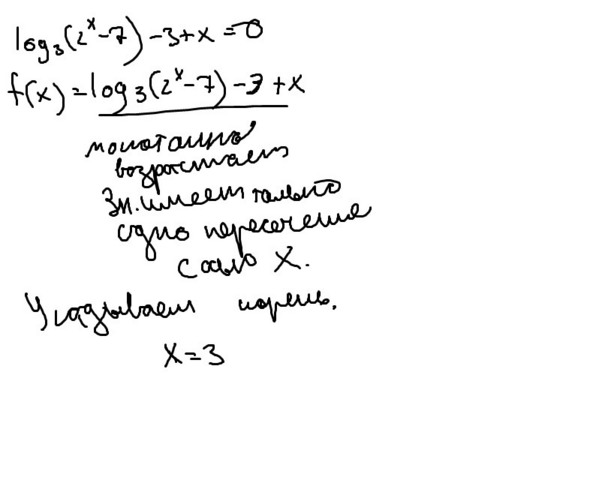 log₃(2ˣ-7)-3+x=0
f(x)=log₃(2ˣ-7)-3+x
монотонно
возрастает
Зн. имеет только
одно пересечение
с осью X.
Угадываем корень.
X=3